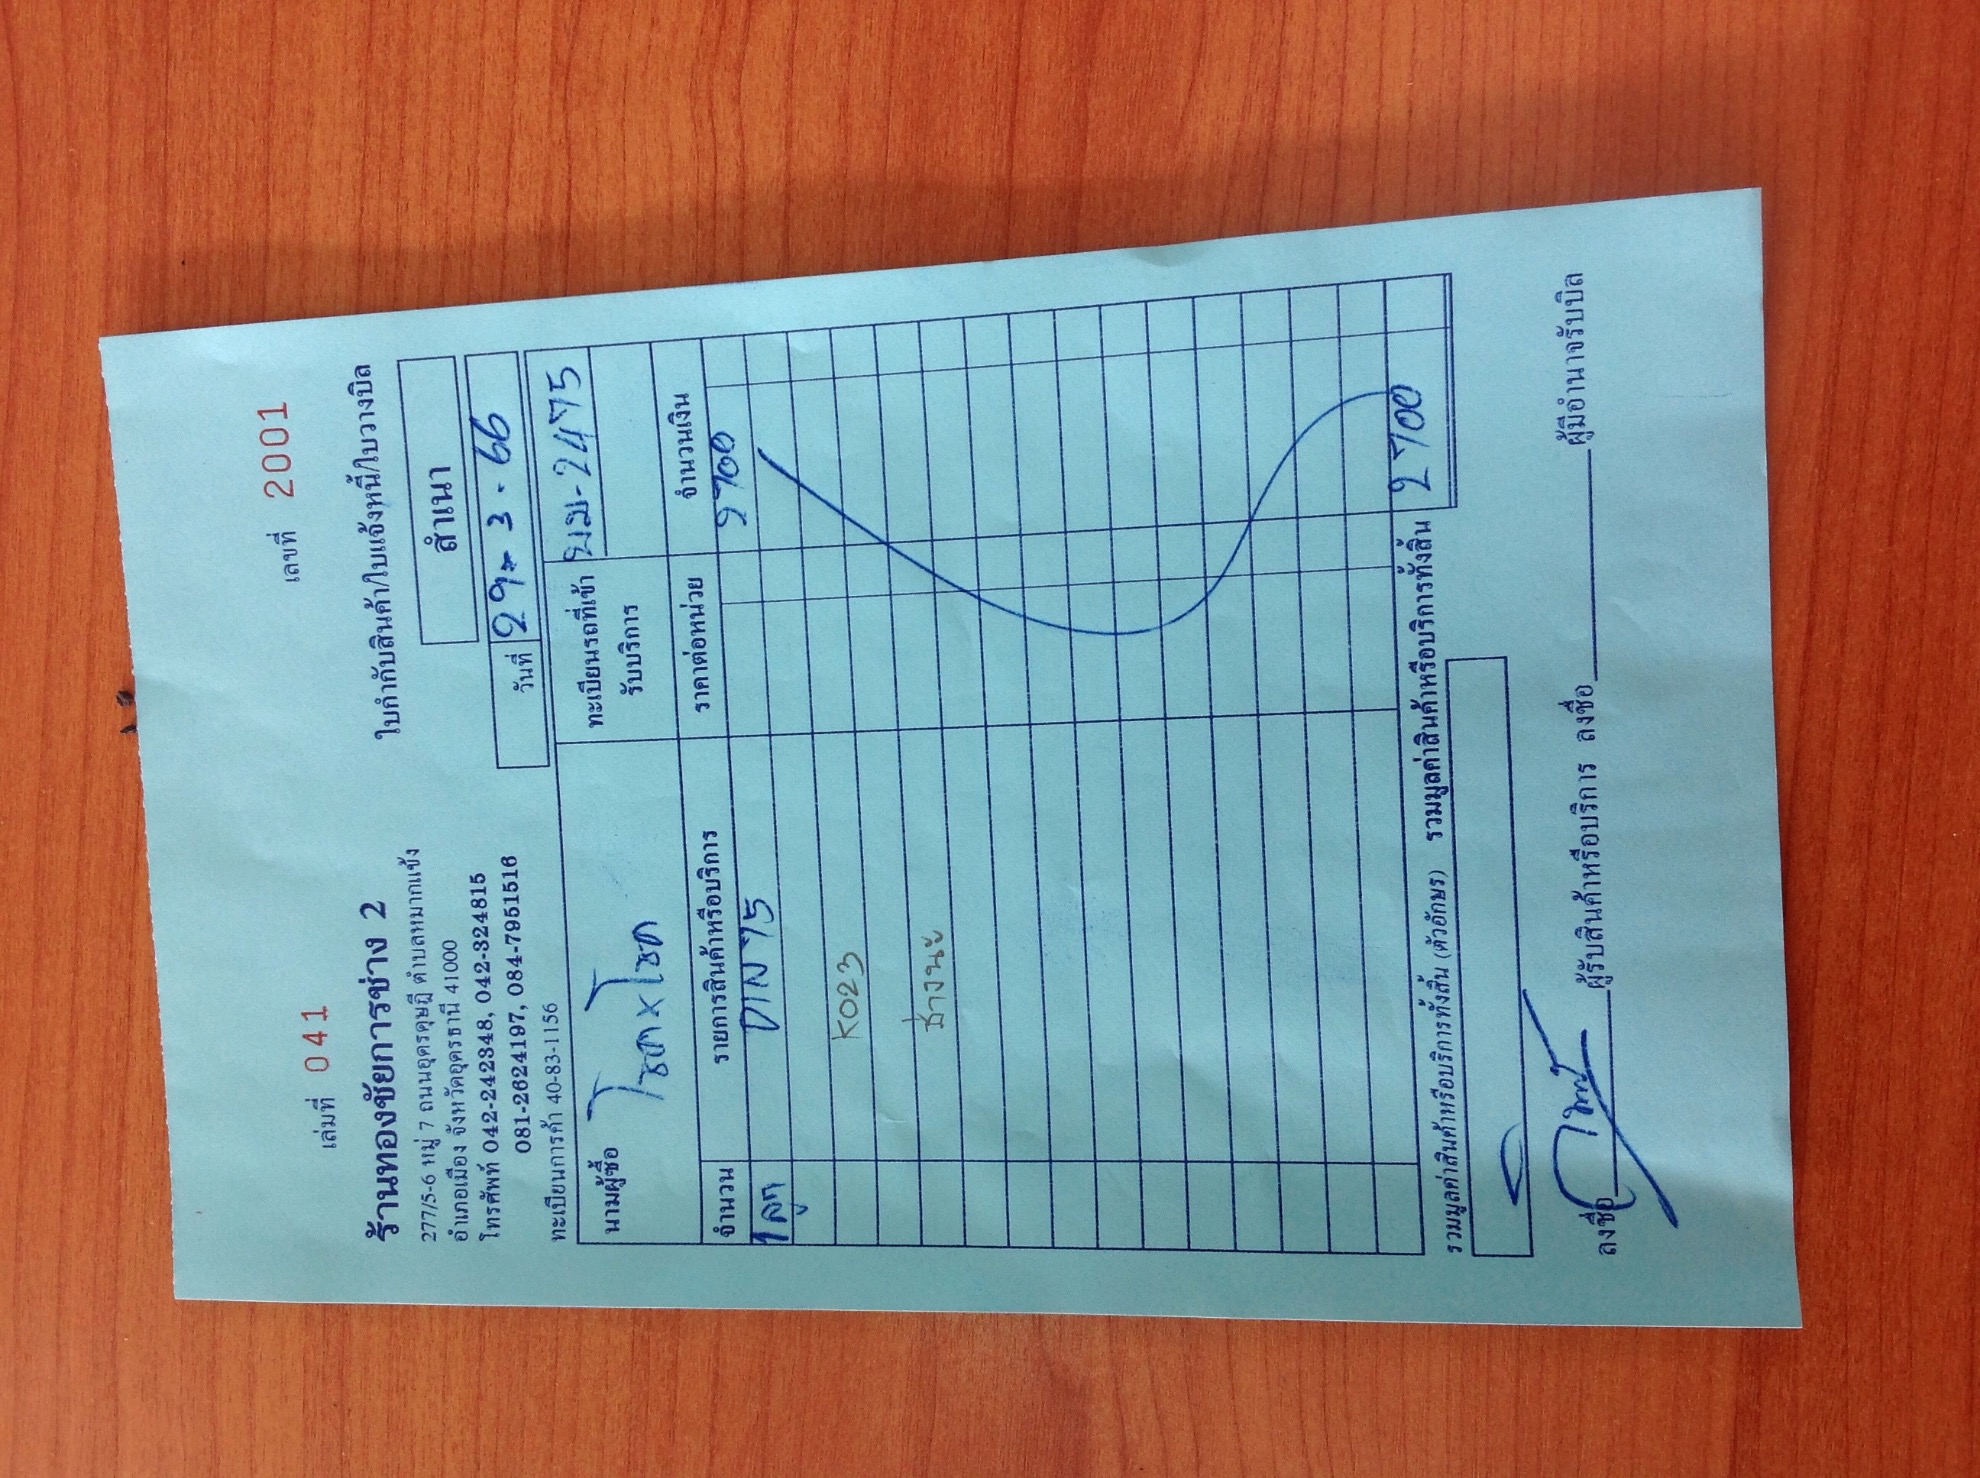 เล่มที่ 041
เลขที่ 2001
ร้านทองชัยการช่าง 2
ใบกำกับสินค้า/ใบแจ้งหนี้/ใบวางบิล
277/5-6 หมู่ 7 ถนนอุดรดุษฎี ตำบลหมากแข้ง
อำเภอเมือง จังหวัดอุดรธานี 41000
สำเนา
โทรศัพท์ 042-242348, 042-324815
081-2624197, 084-7951516
วันที่ 29-3-66
ทะเบียนการค้า 40-83-1156
นามผู้ซื้อ โชคxโชค
ทะเบียนรถที่เข้ารับบริการ
2475
จำนวน รายการสินค้าหรือบริการ ราคาต่อหน่วย จำนวนเงิน
1 ลูก DIN 75 2700
K023
ช่างนะ
รวมมูลค่าสินค้าหรือบริการทั้งสิ้น (ตัวอักษร) รวมมูลค่าสินค้าหรือบริการทั้งสิ้น 2700
ลงชื่อ ผู้รับสินค้าหรือบริการ ลงชื่อ ผู้มีอำนาจรับบิล